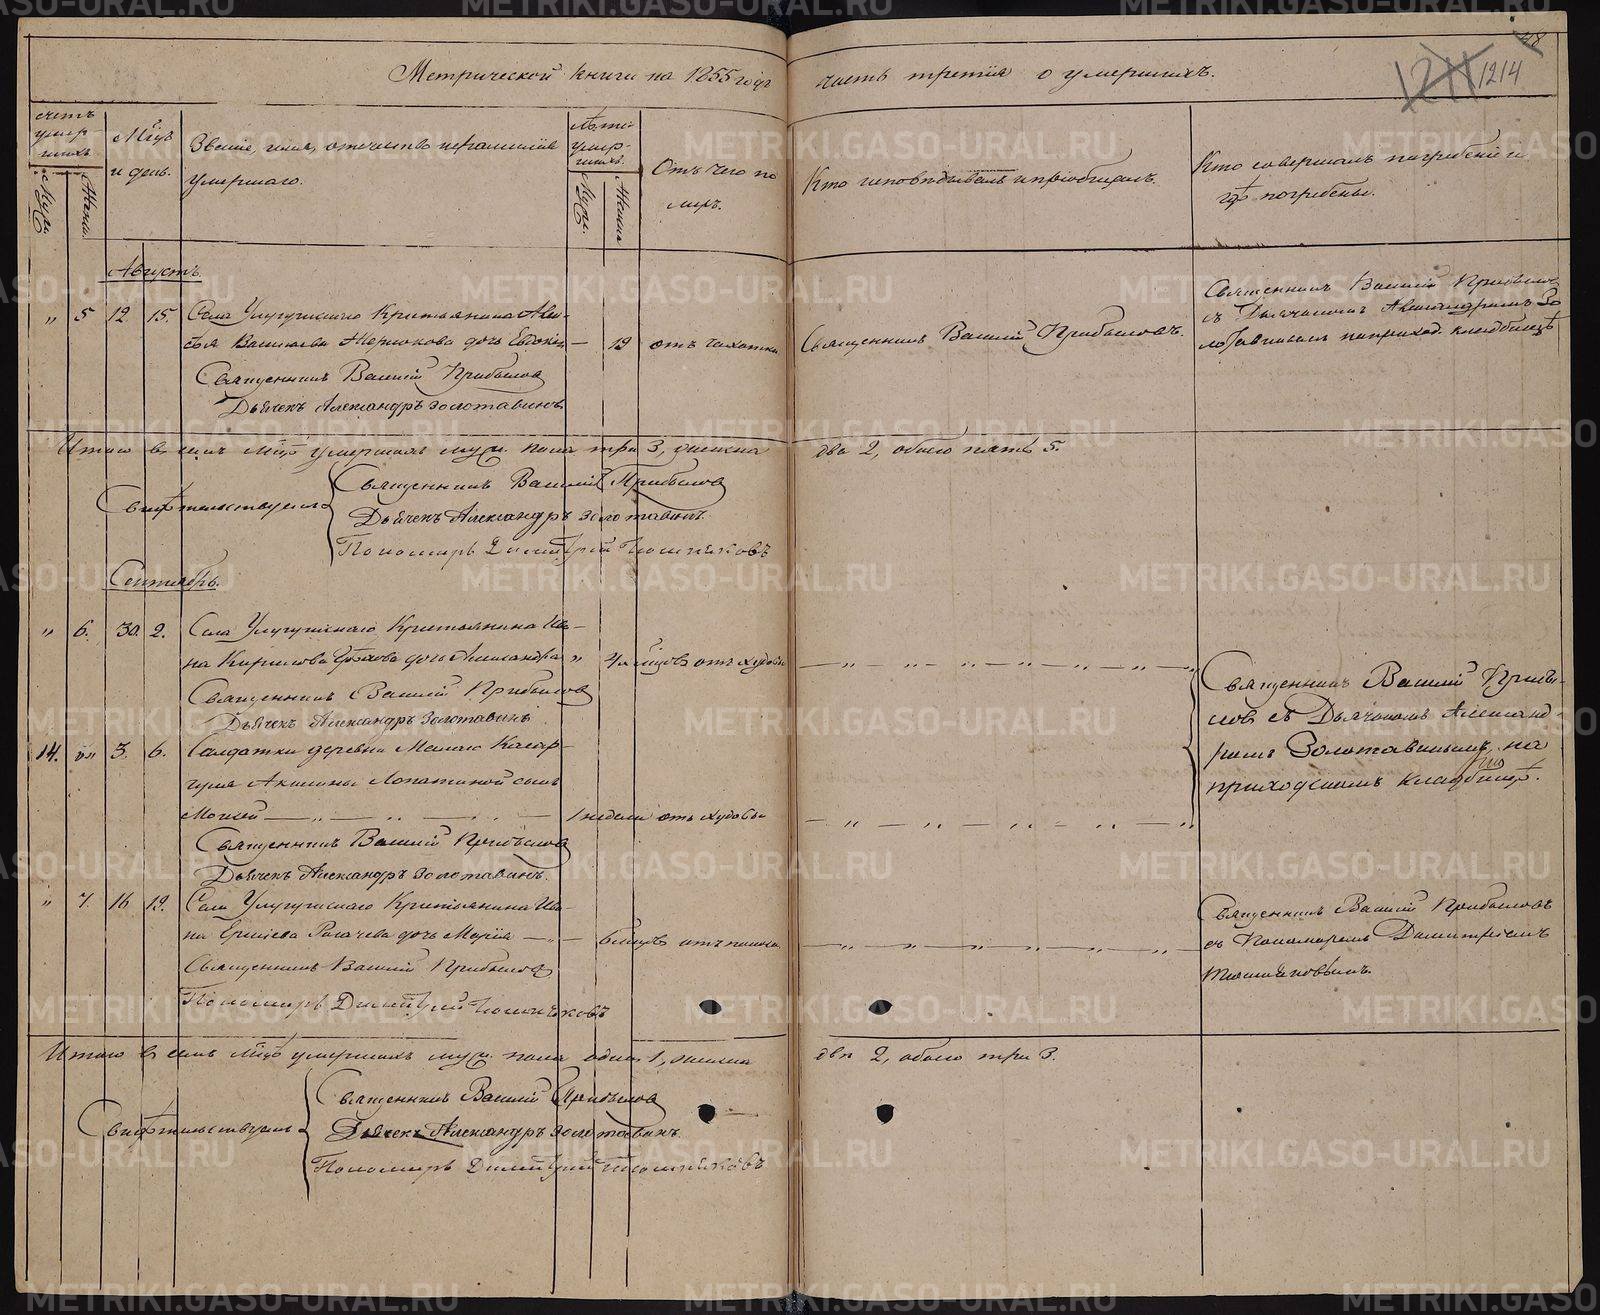 Метрической книги на 1855 годъ часть третія о умершихъ.
1214
счетъ умершихъ
Муж.
Женс.
Мцъ и день.
Званіе, имя, отчество и фамилія
умершаго.
Лета умершихъ
Муж.
Женск
Отъ чего по
меръ.
Кто исповѣдывалъ и пріобщалъ.
Кто совершалъ погребеніе и
гдѣ погребены.
Августъ.
„ 5 12 15. Села Крестьянина
Васильева дочь Евдокія — 19 отъ чахотки
Священникъ Василій Прибыловъ.
Священникъ Василій Прибыловъ
съ Дьячкомъ Александромъ Зо
лотавинымъ на приход. кладбищѣ
Священникъ Василій Прибыловъ
Дьячекъ Александръ Золотавинъ
Итого въ семъ мцѣ умершихъ муж. пола три 3, женска двѣ 2, обоего пять 5.
Свидѣтельствуемъ
Священникъ Василій Прибыловъ
Дьячекъ Александръ Золотавинъ.
Пономарь Димитрій
Сентябрь.
„ 6. 30. 2. Села Крестьянина Ива-
на Кирилова дочь Александра „ 4 мѣцовъ отъ худобы
Священникъ Василій Прибыловъ
Дьячекъ Александръ Золотавинъ
Священникъ Василій Прибы-
ловъ съ Дьячкомъ Александ-
ромъ Золотавинымъ, на
приходскомъ кладбищѣ.
14. „ 3. 6. Солдатки деревни
Акилины Лопатиной сынъ
Моисей — 1 недели отъ худобы
Священникъ Василій Прибыловъ
Дьячекъ Александръ Золотавинъ.
„ 7. 16 19. Села Крестьянина Ива-
на дочь Марія — 6 мѣцовъ отъ поноса.
Священникъ Василій Прибыловъ
съ Пономаремъ Димитріемъ
Священникъ Василій Прибыловъ
Пономарь Димитрій
Итого въ семъ мцѣ умершихъ муж. пола одинъ 1, женска двѣ 2, обоего три 3.
Свидѣтельствуемъ
Священникъ Василій Прибыловъ
Дьячекъ Александръ Золотавинъ.
Пономарь Димитрій
METRIKI.GASO-URAL.RU